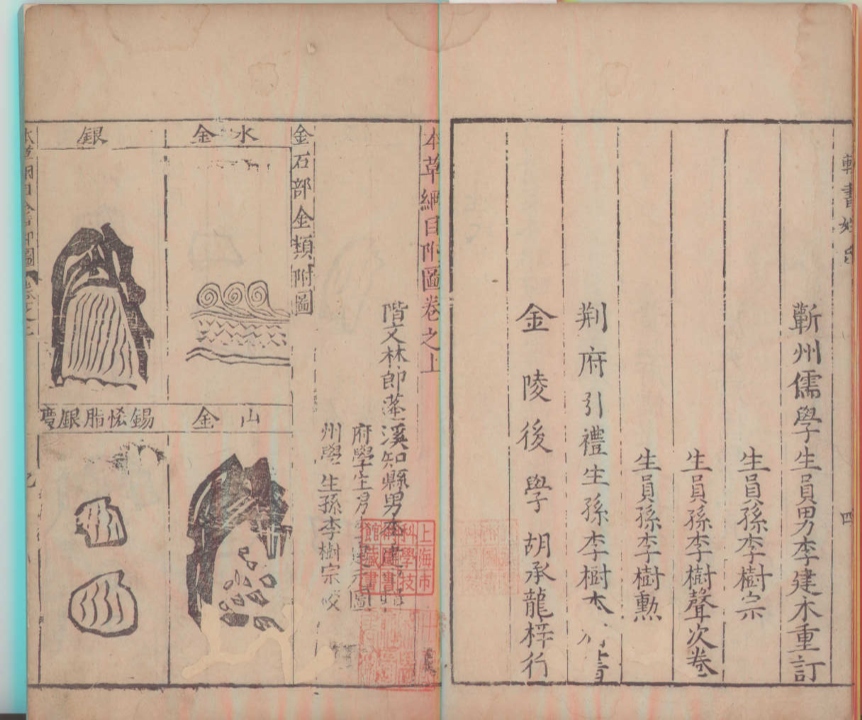 蘄州儒學生員男李建木重訂
生員孫李樹宗
生員孫李樹聲次卷
生員孫李樹勳
荆府引禮生孫李樹本
金陵後學胡承龍梓行
四
本草綱目附圖卷之上
階文林郎蓬溪知縣男李建
府學生男
州學生孫李樹宗校
金石部金類附圖
水金
山金
銀
錫恡脂銀礦
上海市
科學技
館藏書